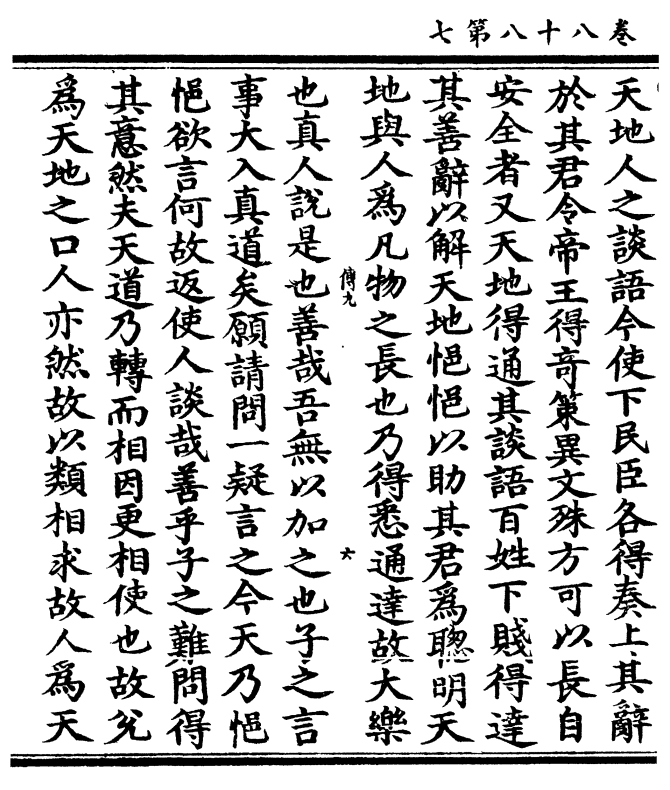 卷八十八第七
天地人之談語今使下民臣各得奏上其辭
於其君令帝王得竒策異文殊方可以長自
安全者又天地得通其談語百姓下賤得達
其善辭以解天地悒悒以助其君為聰明天
地與人為凡物之長也乃得悉通達故大樂
傳九
六
也真人說是也善哉吾無以加之也子之言
事大入真道矣願請問一疑言之今天乃悒
悒欲言何故返使人談哉善乎子之難問得
其意然夫天道乃轉而相因更相使也故兊
為天地之口人亦然故以類相求故人為天